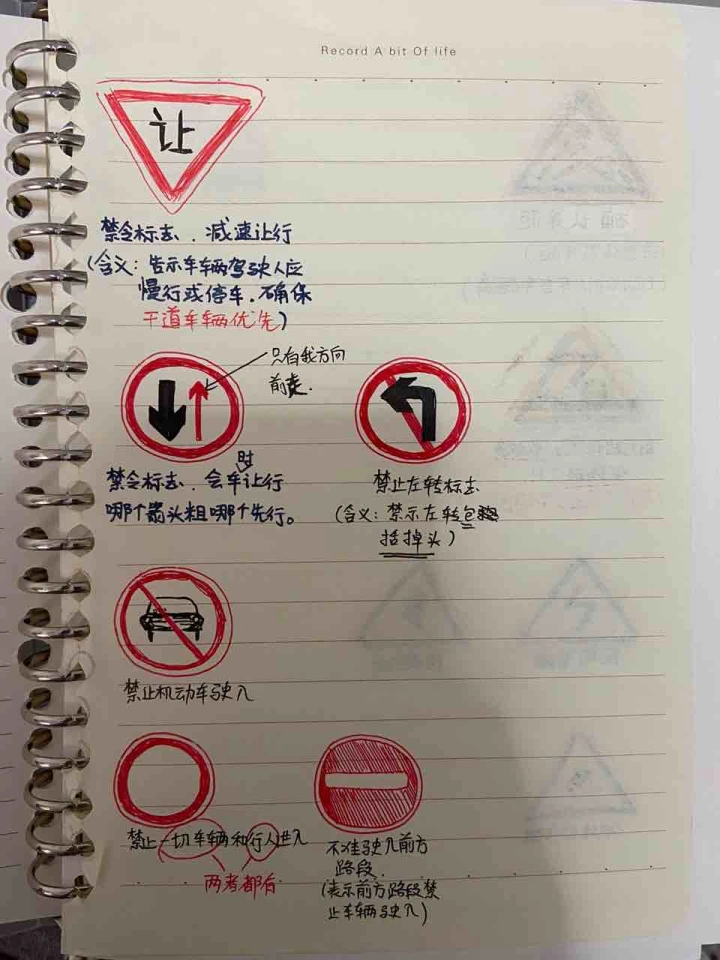 Record A bit Of life
让
禁令标志、减速让行
(含义：告示车辆驾驶人应
慢行或停车，确保
干道车辆优先)
只有我方向
前走.
时
禁令标志、会车让行
哪个箭头粗哪个先行。
禁止左转标志
(含义：禁示左转包
括掉头)
禁止机动车驶入
禁止一切车辆和行人进入
两者都有
不准驶入前方
路段.
(表示前方路段禁
止车辆驶入)